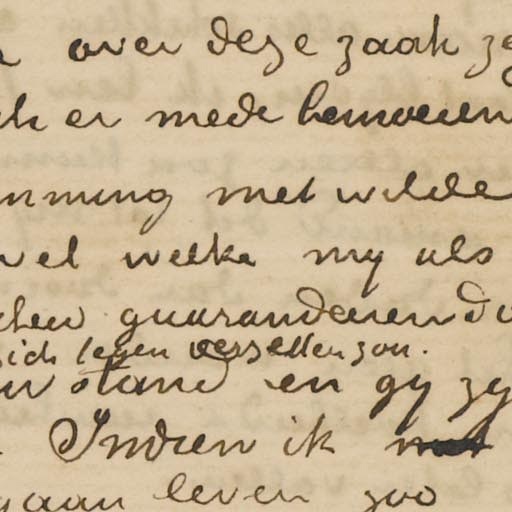 over deze zaak ze
ik er mede bemoeien
mming met wilde
wel welke my als
guarandeeren d
zich tegen verzetten zou.
stand en gy zy
Indien ik met
gaan leven zoo